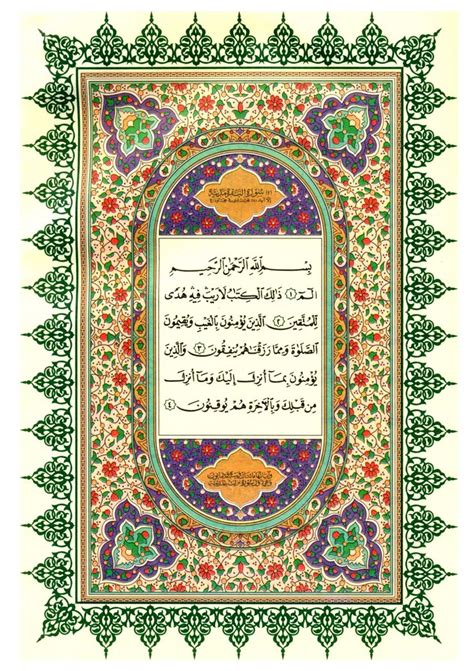 بِسْمِ ٱللَّهِ ٱلرَّحْمَٰنِ ٱلرَّحِيمِ
الٓمٓ ﴿١﴾ ذَٰلِكَ ٱلْكِتَٰبُ لَا رَيْبَ فِيهِ هُدًى
لِّلْمُتَّقِينَ ﴿٢﴾ ٱلَّذِينَ يُؤْمِنُونَ بِٱلْغَيْبِ وَيُقِيمُونَ
ٱلصَّلَوٰةَ وَمِمَّا رَزَقْنَٰهُمْ يُنفِقُونَ ﴿٣﴾ وَٱلَّذِينَ
يُؤْمِنُونَ بِمَآ أُنزِلَ إِلَيْكَ وَمَآ أُنزِلَ
مِن قَبْلِكَ وَبِٱلْءَاخِرَةِ هُمْ يُوقِنُونَ ﴿٤﴾